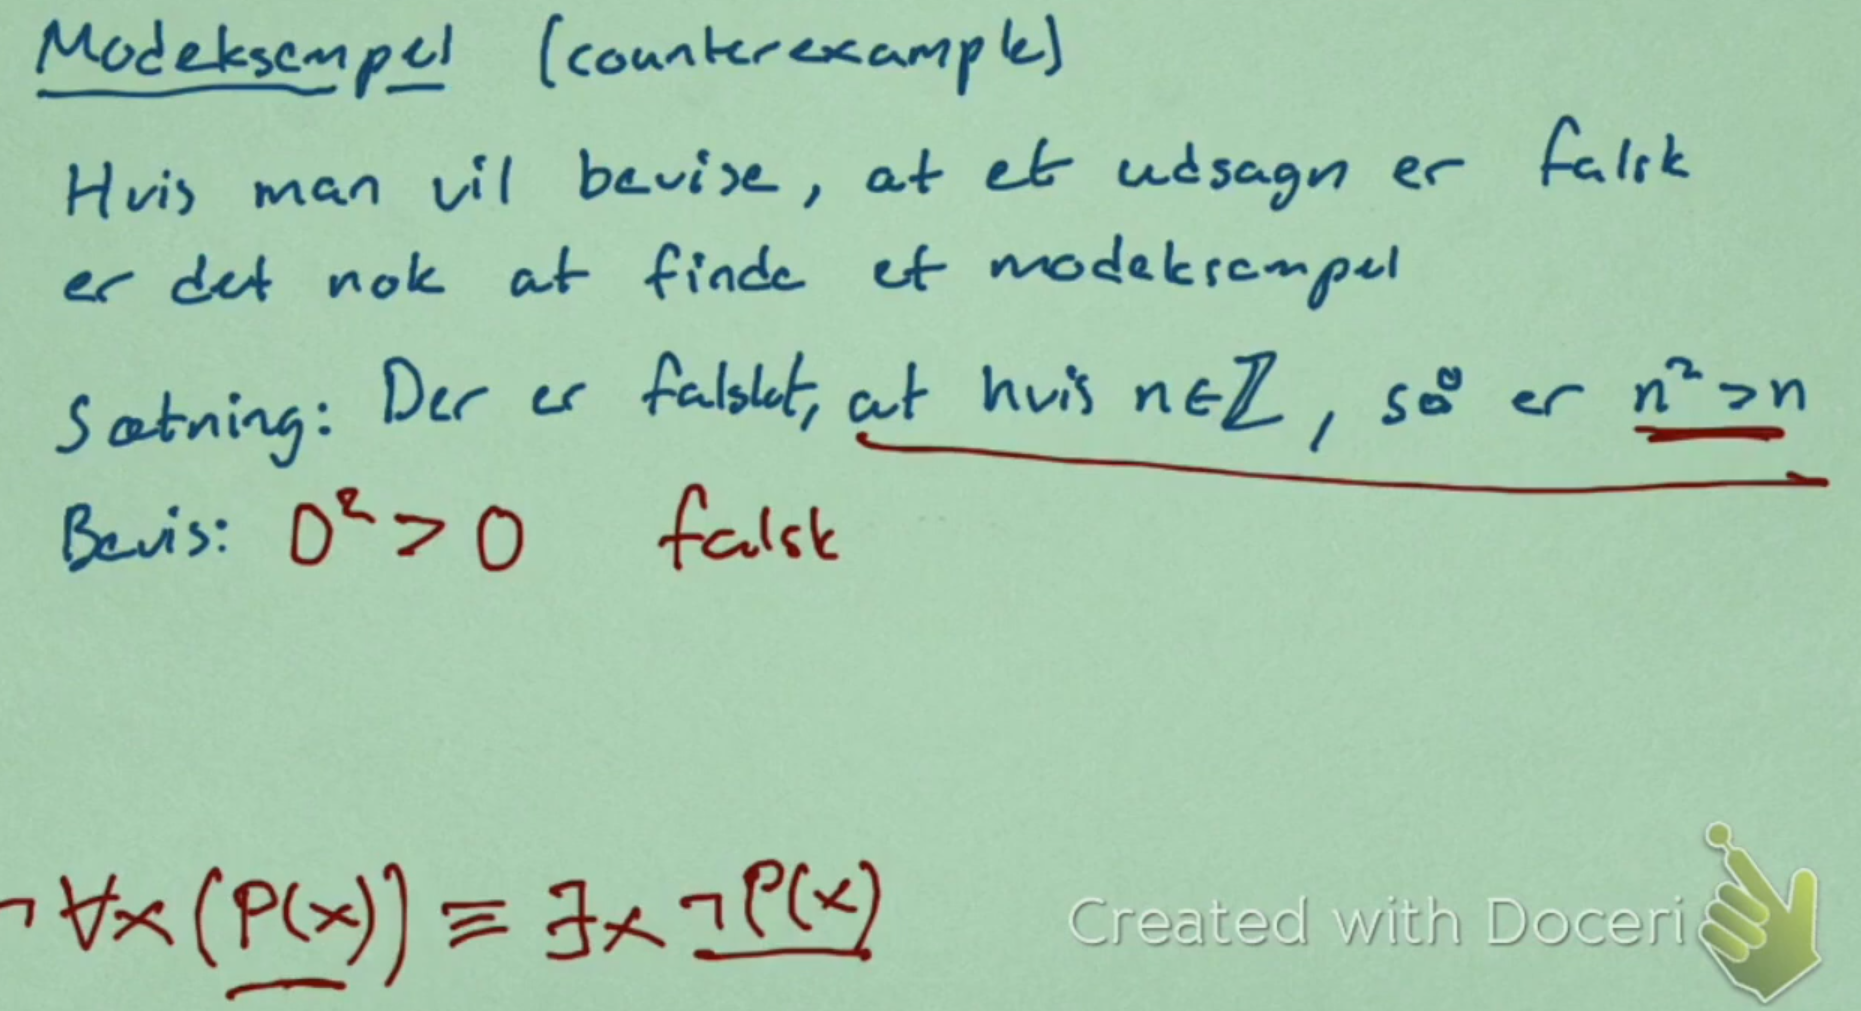 Modeksempel (counterexample)
Hvis man vil bevise, at et udsagn er falsk
er det nok at finde et modeksempel
Sætning: Der er falskt, at hvis n∈ℤ, så er n² > n
Bevis: 0² > 0 falsk
¬∀x (P(x)) ≡ ∃x ¬P(x)
Created with Doceri